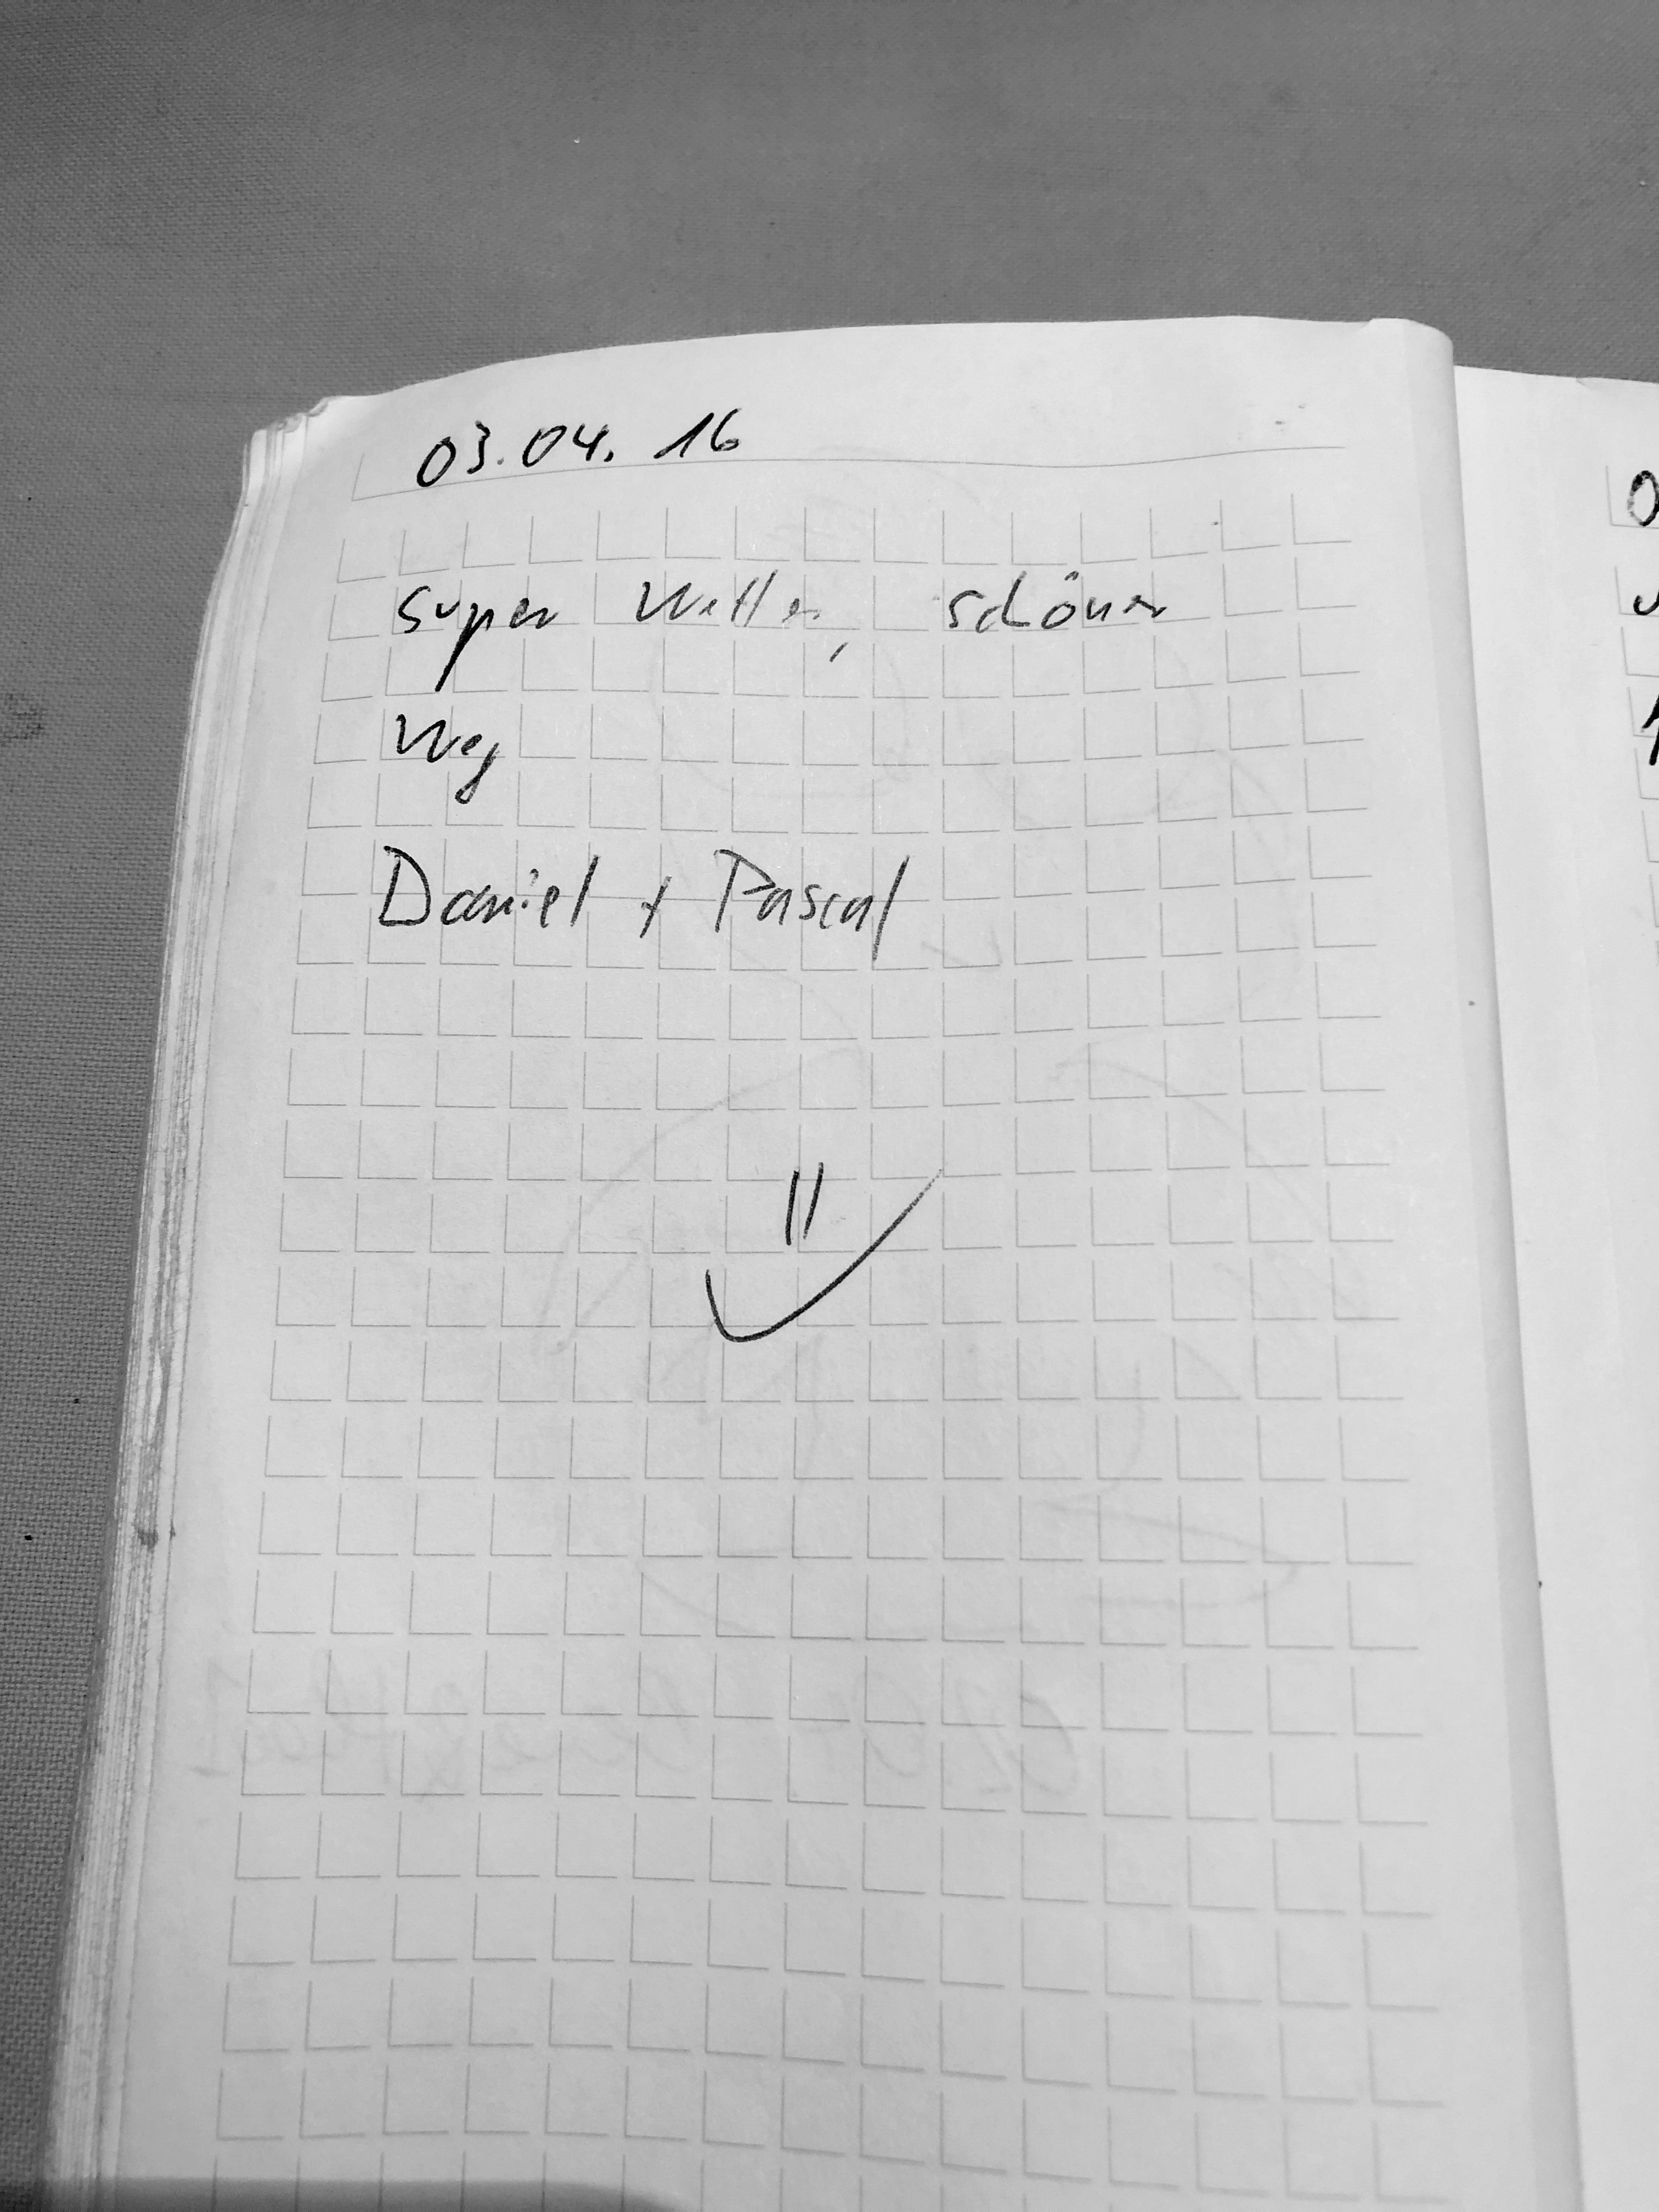 03.04.16
Super Wetter, schöner
Weg
Daniel + Pascal